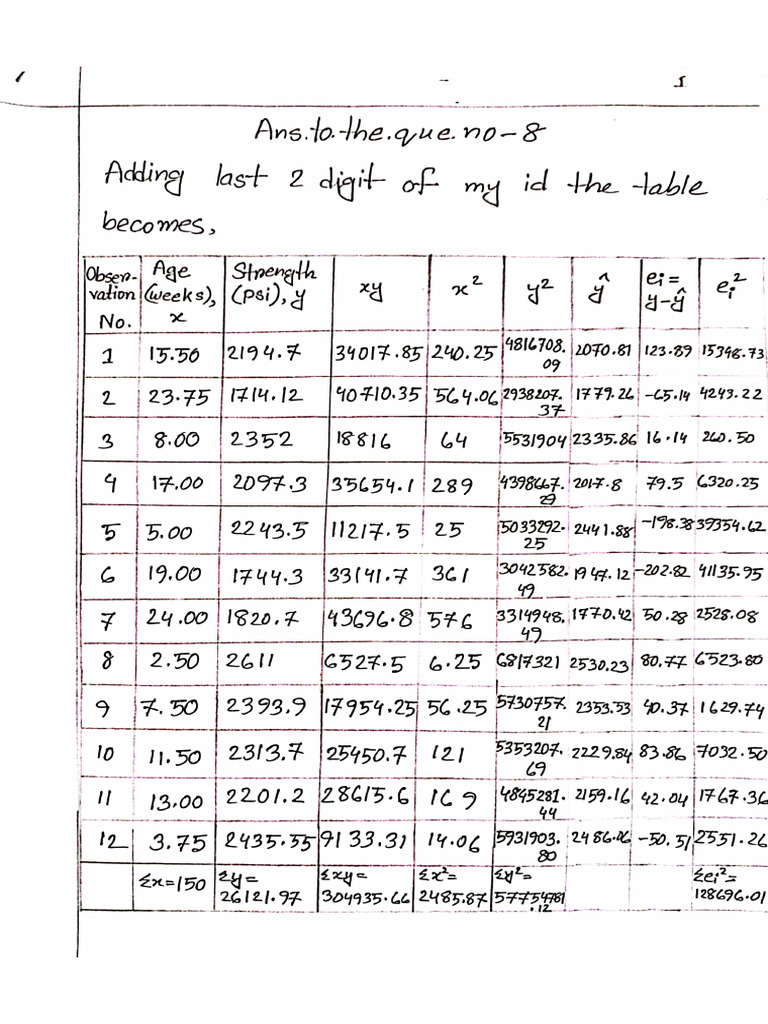 Ans.to.the.que.no-8
Adding last 2 digit of my id the table
becomes,
Obser-vation No. | Age (weeks), x | Strength (psi), y | xy | x² | y² | ŷ | ei = y-ŷ | ei²
1 | 15.50 | 2194.7 | 34017.85 | 240.25 | 4816708.09 | 2070.81 | 123.89 | 15348.73
2 | 23.75 | 1714.12 | 40710.35 | 564.06 | 2938207.37 | 1779.26 | -65.14 | 4243.22
3 | 8.00 | 2352 | 18816 | 64 | 5531904 | 2335.86 | 16.14 | 260.50
4 | 17.00 | 2097.3 | 35654.1 | 289 | 4398667.29 | 2017.8 | 79.5 | 6320.25
5 | 5.00 | 2243.5 | 11217.5 | 25 | 5033292.25 | 2441.88 | -198.38 | 39354.62
6 | 19.00 | 1744.3 | 33141.7 | 361 | 3042582.49 | 1947.12 | -202.82 | 41135.95
7 | 24.00 | 1820.7 | 43696.8 | 576 | 3314948.49 | 1770.42 | 50.28 | 2528.08
8 | 2.50 | 2611 | 6527.5 | 6.25 | 6817321 | 2530.23 | 80.77 | 6523.80
9 | 7.50 | 2393.9 | 17954.25 | 56.25 | 5730757.21 | 2353.53 | 40.37 | 1629.74
10 | 11.50 | 2313.7 | 25450.7 | 121 | 5353207.69 | 2229.84 | 83.86 | 7032.50
11 | 13.00 | 2201.2 | 28615.6 | 169 | 4845281.44 | 2159.16 | 42.04 | 1767.36
12 | 3.75 | 2435.55 | 9133.31 | 14.06 | 5931903.80 | 2486.06 | -50.51 | 2551.26
Σx=150 | Σy= 26121.97 | Σxy= 304935.66 | Σx²= 2485.87 | Σy²= 57754781.12 | Σei²= 128696.01